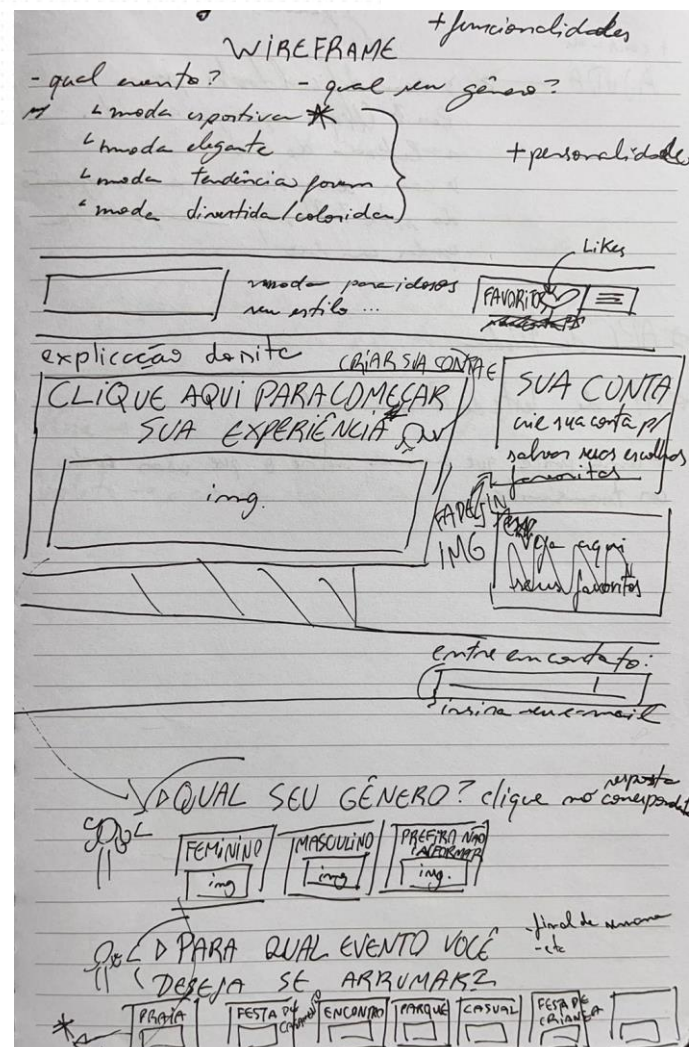 + funcionalidades
WIREFRAME
- qual evento? - qual seu gênero?
↳ moda esportiva *
↳ moda elegante
↳ moda tendência jovem
↳ moda divertida/colorida
+ personalidade
Likes
moda para idosos
seu estilo ...
FAVORITOS
explicação do site
CRIAR SUA CONTA
CLIQUE AQUI PARA COMEÇAR
SUA EXPERIÊNCIA
img.
SUA CONTA
crie sua conta p/
salvar seus escolhidos
favoritos
FADE IN
IMG
Veja aqui
seus favoritos
entre em contato:
insira seu e-mail
QUAL SEU GÊNERO? clique no correspondente
resposta
FEMININO
img
MASCULINO
img
PREFIRA NÃO
INFORMAR
img.
PARA QUAL EVENTO VOCÊ
DESEJA SE ARRUMAR?
- final de semana
- etc
* PRAIA
FESTA DE
CASAMENTO
ENCONTRO
PARQUE
CASUAL
FESTA DE
CRIANÇA